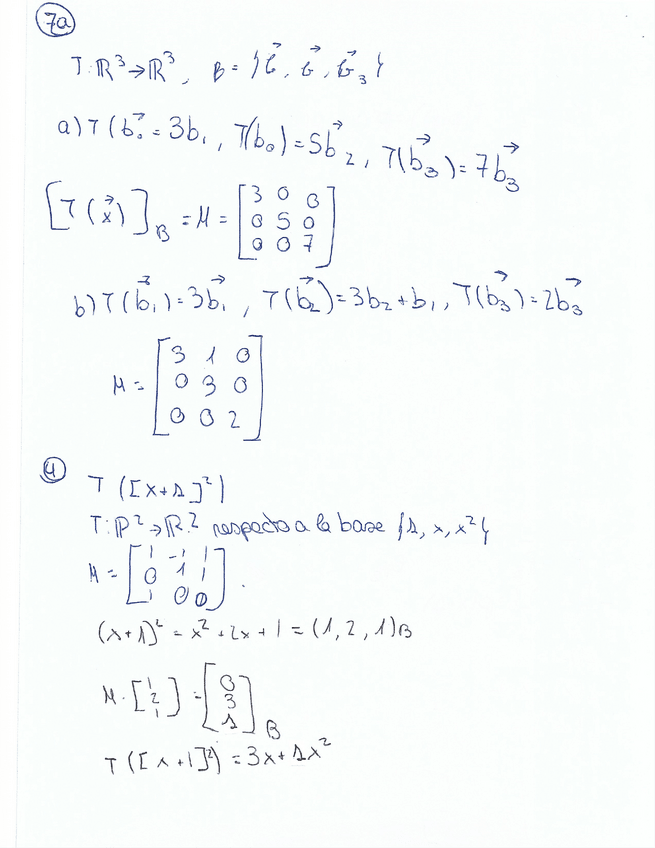 7a
T: ℝ³→ℝ³, B = {b⃗, b⃗, b⃗₃}
a) T(b⃗₀ = 3b₁, T(b₀) = 5b⃗₂, T(b⃗₃) = 7b⃗₃
[T(x⃗)]_B = M = [3 0 0
0 5 0
0 0 7]
b) T(b⃗₁) = 3b⃗₁, T(b⃗₂) = 3b₂ + b₁, T(b⃗₃) = 2b⃗₃
M = [3 1 0
0 3 0
0 0 2]
4
T ([x+1]²)
T: P²→R² respecto a la base {1, x, x²}
M = [1 -1 1
0 1 1
1 0 0].
(x+1)² = x² + 2x + 1 = (1, 2, 1)B
M · [1
2
1] = [0
3
1]_B
T ([x+1]²) = 3x + 1x²